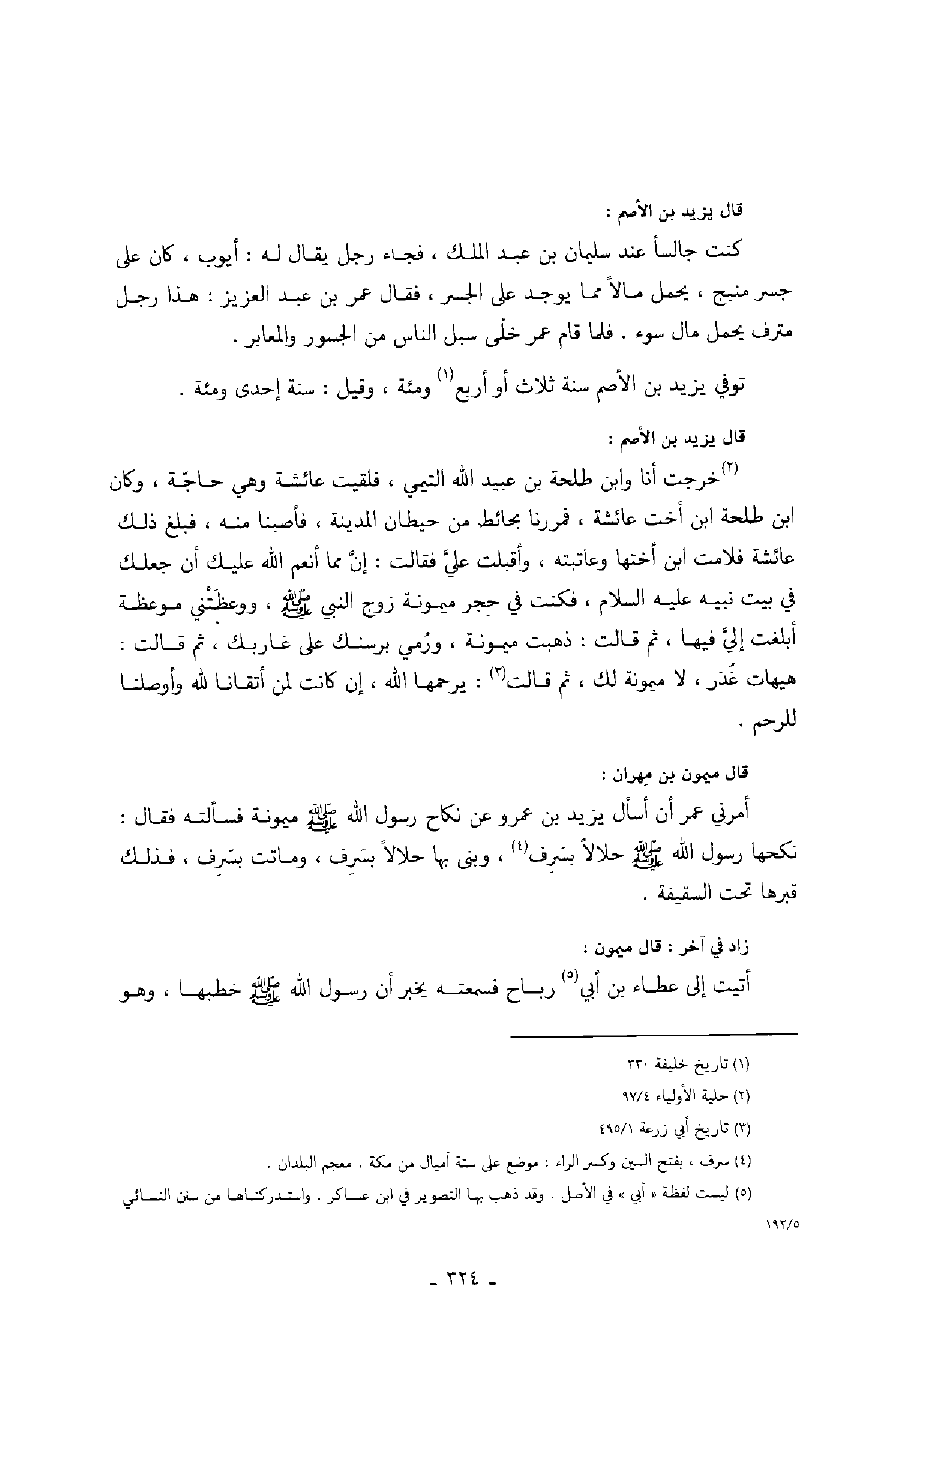 قال يزيد بن الأصم :
كنت جالساً عند سليمان بن عبد الملك ، فجاء رجل يقال له : أيوب ، كان على
جسر منبج ، يحمل مالاً مما يوجد على الجسر ، فقال عمر بن عبد العزيز : هذا رجل
مترف يحمل مال سوء . فلما قام عمر خلّى سبل الناس من الجسور والمعابر .
توفي يزيد بن الأصم سنة ثلاث أو أربع(١) ومئة ، وقيل : سنة إحدى ومئة .
قال يزيد بن الأصم :
(٢)خرجت أنا وابن طلحة بن عبيد الله التيمي ، فلقيت عائشة وهي حاجّة ، وكان
ابن طلحة ابن أخت عائشة ، فمررنا بحائط من حيطان المدينة ، فأصبنا منه ، فبلغ ذلك
عائشة فلامت ابن أختها وعاتبته ، وأقبلت عليَّ فقالت : إنَّ مما أنعم الله عليك أن جعلك
في بيت نبيه عليه السلام ، فكنت في حجر ميمونة زوج النبي ﷺ ، ووعظَتْني موعظة
أبلغت إليَّ فيها ، ثم قالت : ذهبت ميمونة ، ورُمي برسنك على غاربك ، ثم قالت :
هيهات غُدَر ، لا ميمونة لك ، ثم قالت(٣) : يرحمها الله ، إن كانت لمن أتقانا لله وأوصلنا
للرحم .
قال ميمون بن مهران :
أمرني عمر أن أسأل يزيد بن عمرو عن نكاح رسول الله ﷺ ميمونة فسألته فقال :
نكحها رسول الله ﷺ حلالاً بسَرِف(٤) ، وبنى بها حلالاً بسَرِف ، وماتت بسَرِف ، فذلك
قبرها تحت السقيفة .
زاد في آخر : قال ميمون :
أتيت إلى عطاء بن أبي(٥) رباح فسمعته يخبر أن رسول الله ﷺ خطبها ، وهو
(١) تاريخ خليفة ٣٣٠
(٢) حلية الأولياء ٩٧/٤
(٣) تاريخ أبي زرعة ٤٩٥/١
(٤) سرف ، بفتح السين وكسر الراء : موضع على ستة أميال من مكة . معجم البلدان .
(٥) ليست لفظة « أبي » في الأصل . وقد ذهب بها التصوير في ابن عساكر . واستدركناها من سنن النسائي
١٩٢/٥
- ٣٢٤ -